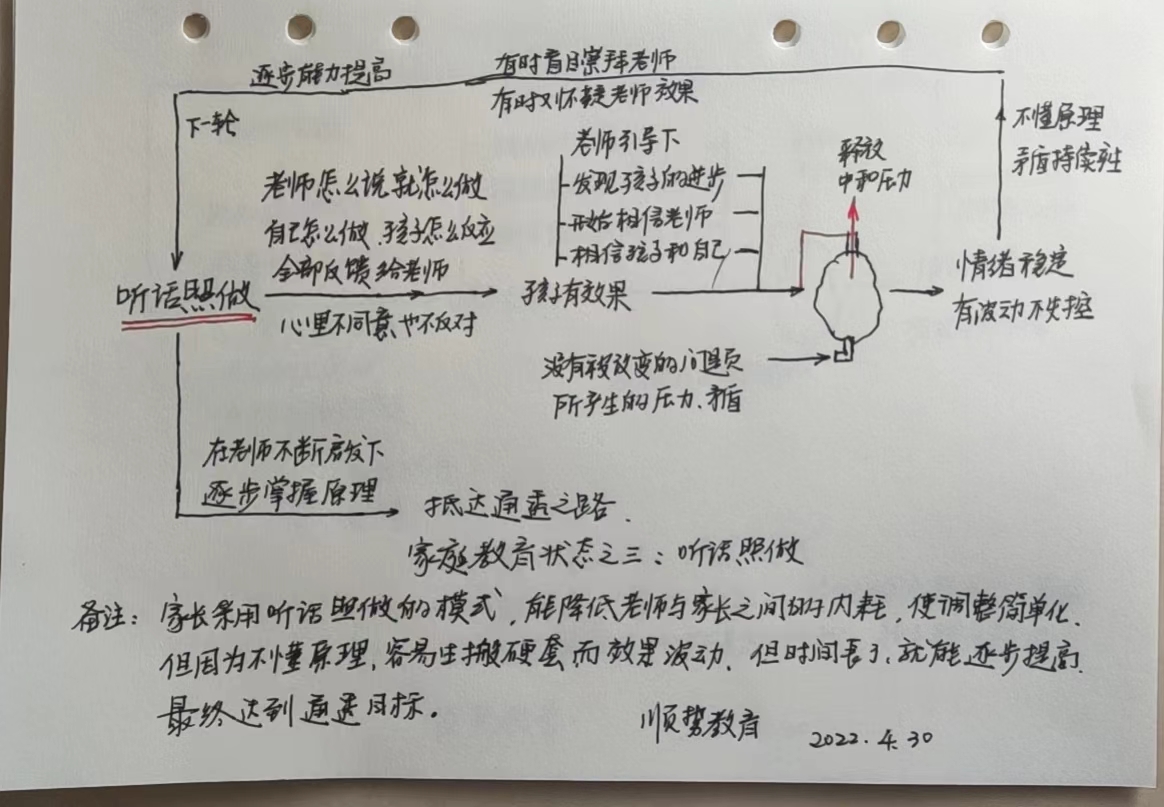 逐步能力提高
有时盲目崇拜老师
有时又怀疑老师效果
下一轮
不懂原理
矛盾持续性
老师怎么说就怎么做
自己怎么做、孩子怎么反应
全部反馈给老师
听话照做
心里不同意也不反对
老师引导下
发现孩子的进步
开始相信老师
相信孩子和自己
孩子有效果
释放
中和压力
没有被改变的问题
所产生的压力、矛盾
情绪稳定
有波动不失控
在老师不断启发下
逐步掌握原理
抵达通透之路.
家庭教育状态之三:听话照做
备注:家长采用听话照做的模式,能降低老师与家长之间的内耗,使调整简单化.
但因为不懂原理,容易生搬硬套而效果波动.但时间長了,就能逐步提高.
最终达到通透目标。
顺势教育
2022.4.30